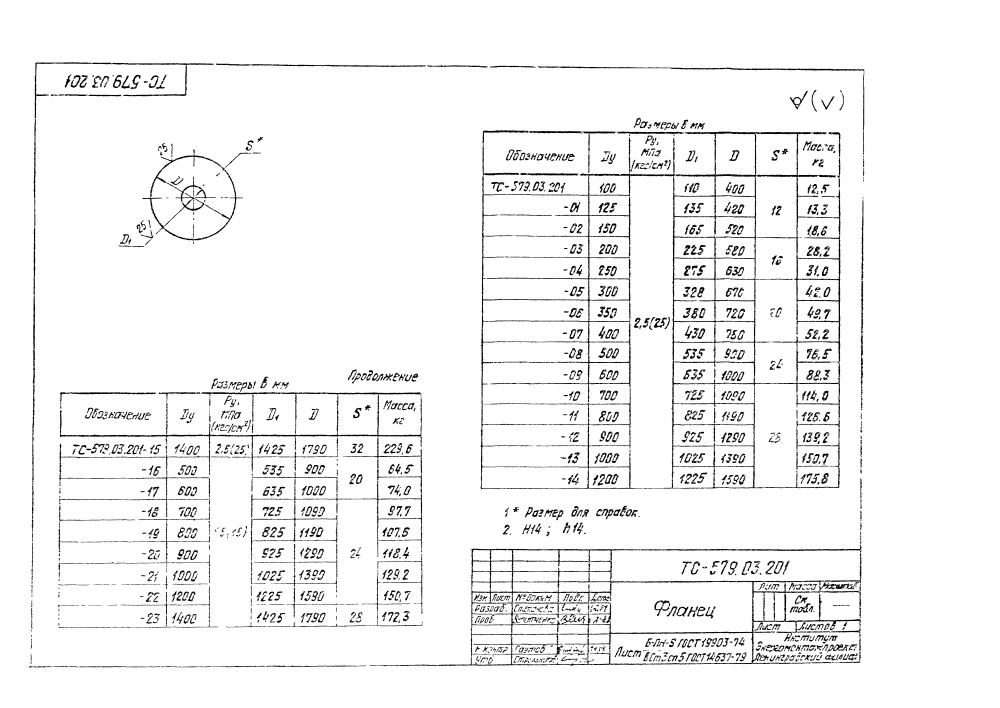 ТС-579.03.201
√(√)
25
S*
D
25
D₁
Размеры в мм
Обозначение Dу Ру, МПа (кгс/см²) D₁ D S* Масса, кг
ТС-579.03.201 100 2,5(25) 110 400 12 12,5
-01 125 135 420 13,3
-02 150 165 520 18,6
-03 200 225 580 16 28,2
-04 250 275 630 31,0
-05 300 328 670 20 42,0
-06 350 380 720 49,7
-07 400 430 750 52,2
-08 500 535 900 24 76,5
-09 600 635 1000 88,3
-10 700 725 1090 114,0
-11 800 825 1190 126,6
-12 900 925 1290 139,2
-13 1000 1025 1390 150,7
-14 1200 1225 1590 175,8
Продолжение
Размеры в мм
Обозначение Dу Ру, МПа (кгс/см²) D₁ D S* Масса, кг
ТС-579.03.201-15 1400 2,5(25) 1425 1790 32 229,6
-16 500 535 900 20 64,5
-17 600 635 1000 74,0
-18 700 725 1090 24 97,7
-19 800 825 1190 107,6
-20 900 925 1290 118,4
-21 1000 1025 1390 129,2
-22 1200 1225 1590 150,7
-23 1400 1425 1790 28 172,3
1 * Размер для справок.
2. H14 ; h14.
ТС-579.03.201
Изм Лист № докум Подп. Дата
Разраб.
Пров
Н контр
Утв
Фланец
Лит Масса Масштаб
См. табл. —
Лист Листов 1
Лист Б-ПН-S ГОСТ 19903-74
ВСт3сп5 ГОСТ 14637-79
Институт
Энергомонтажпроект
Ленинградский филиал